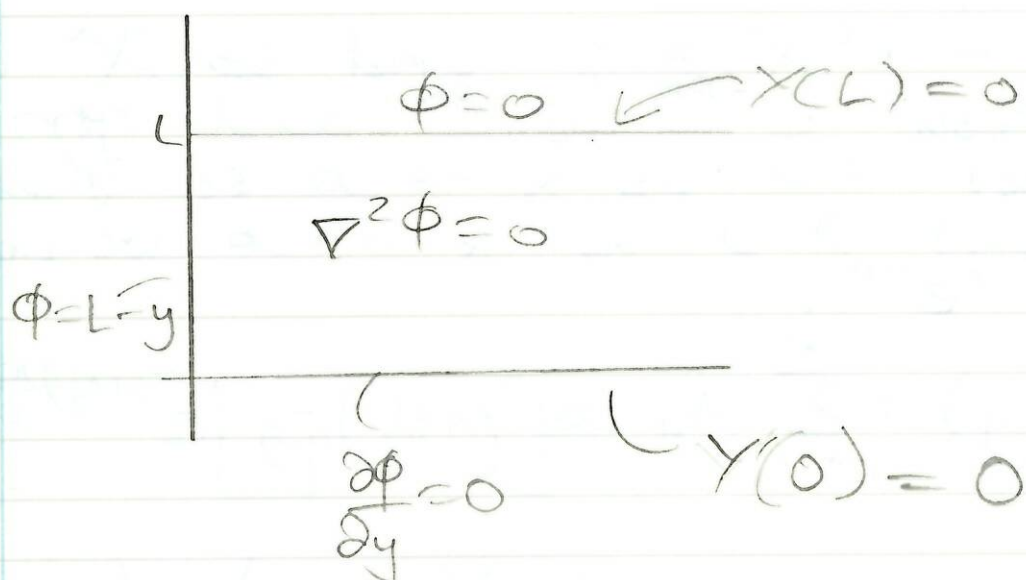 ϕ=0 Y(L) = 0
L
∇²ϕ=0
ϕ=L-y
∂ϕ/∂y=0 Y'(0) = 0